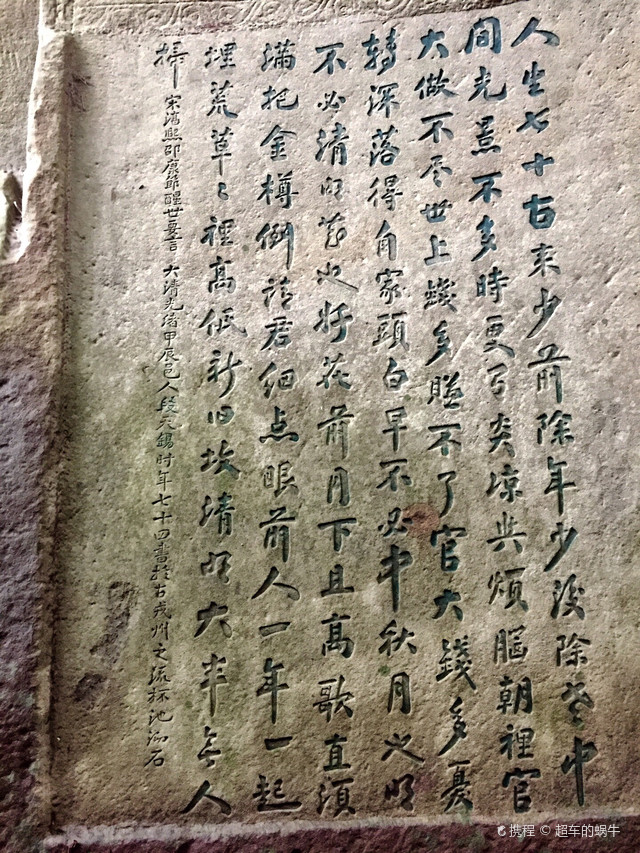 人生七十古来少前除年少後除老中
间光景不多時更有炎凉與烦腦朝裡官
大做不尽世上錢多賺不了官大錢多憂
轉深落得自家頭白早不必中秋月也明
不必清明花也好花前月下且高歌直須
满把金樽倒請君細点眼前人一年一起
埋荒草〻裡高低新旧坟清明大半無人
掃 宋熙邵康節醒世要言 大清光緒甲辰邑人段天錫时年七十四書於古戎州之流杯池泐石
携程 © 超车的蜗牛